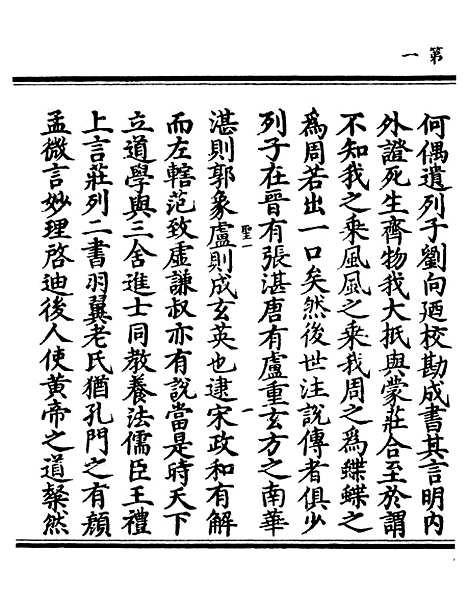 第一
何偶遺列子劉向廼校勘成書其言明內
外證死生齊物我大抵與蒙莊合至於謂
不知我之乘風風之乘我周之為蝶蝶之
為周若出一口矣然後世注說傳者俱少
列子在晉有張湛唐有盧重玄方之南華
聖一
湛則郭象盧則成玄英也逮宋政和有解
一
而左轄范致虛謙叔亦有說當是時天下
立道學與三舍進士同教養法儒臣王禮
上言莊列二書羽翼老氏猶孔門之有顏
孟微言妙理啓迪後人使黃帝之道粲然